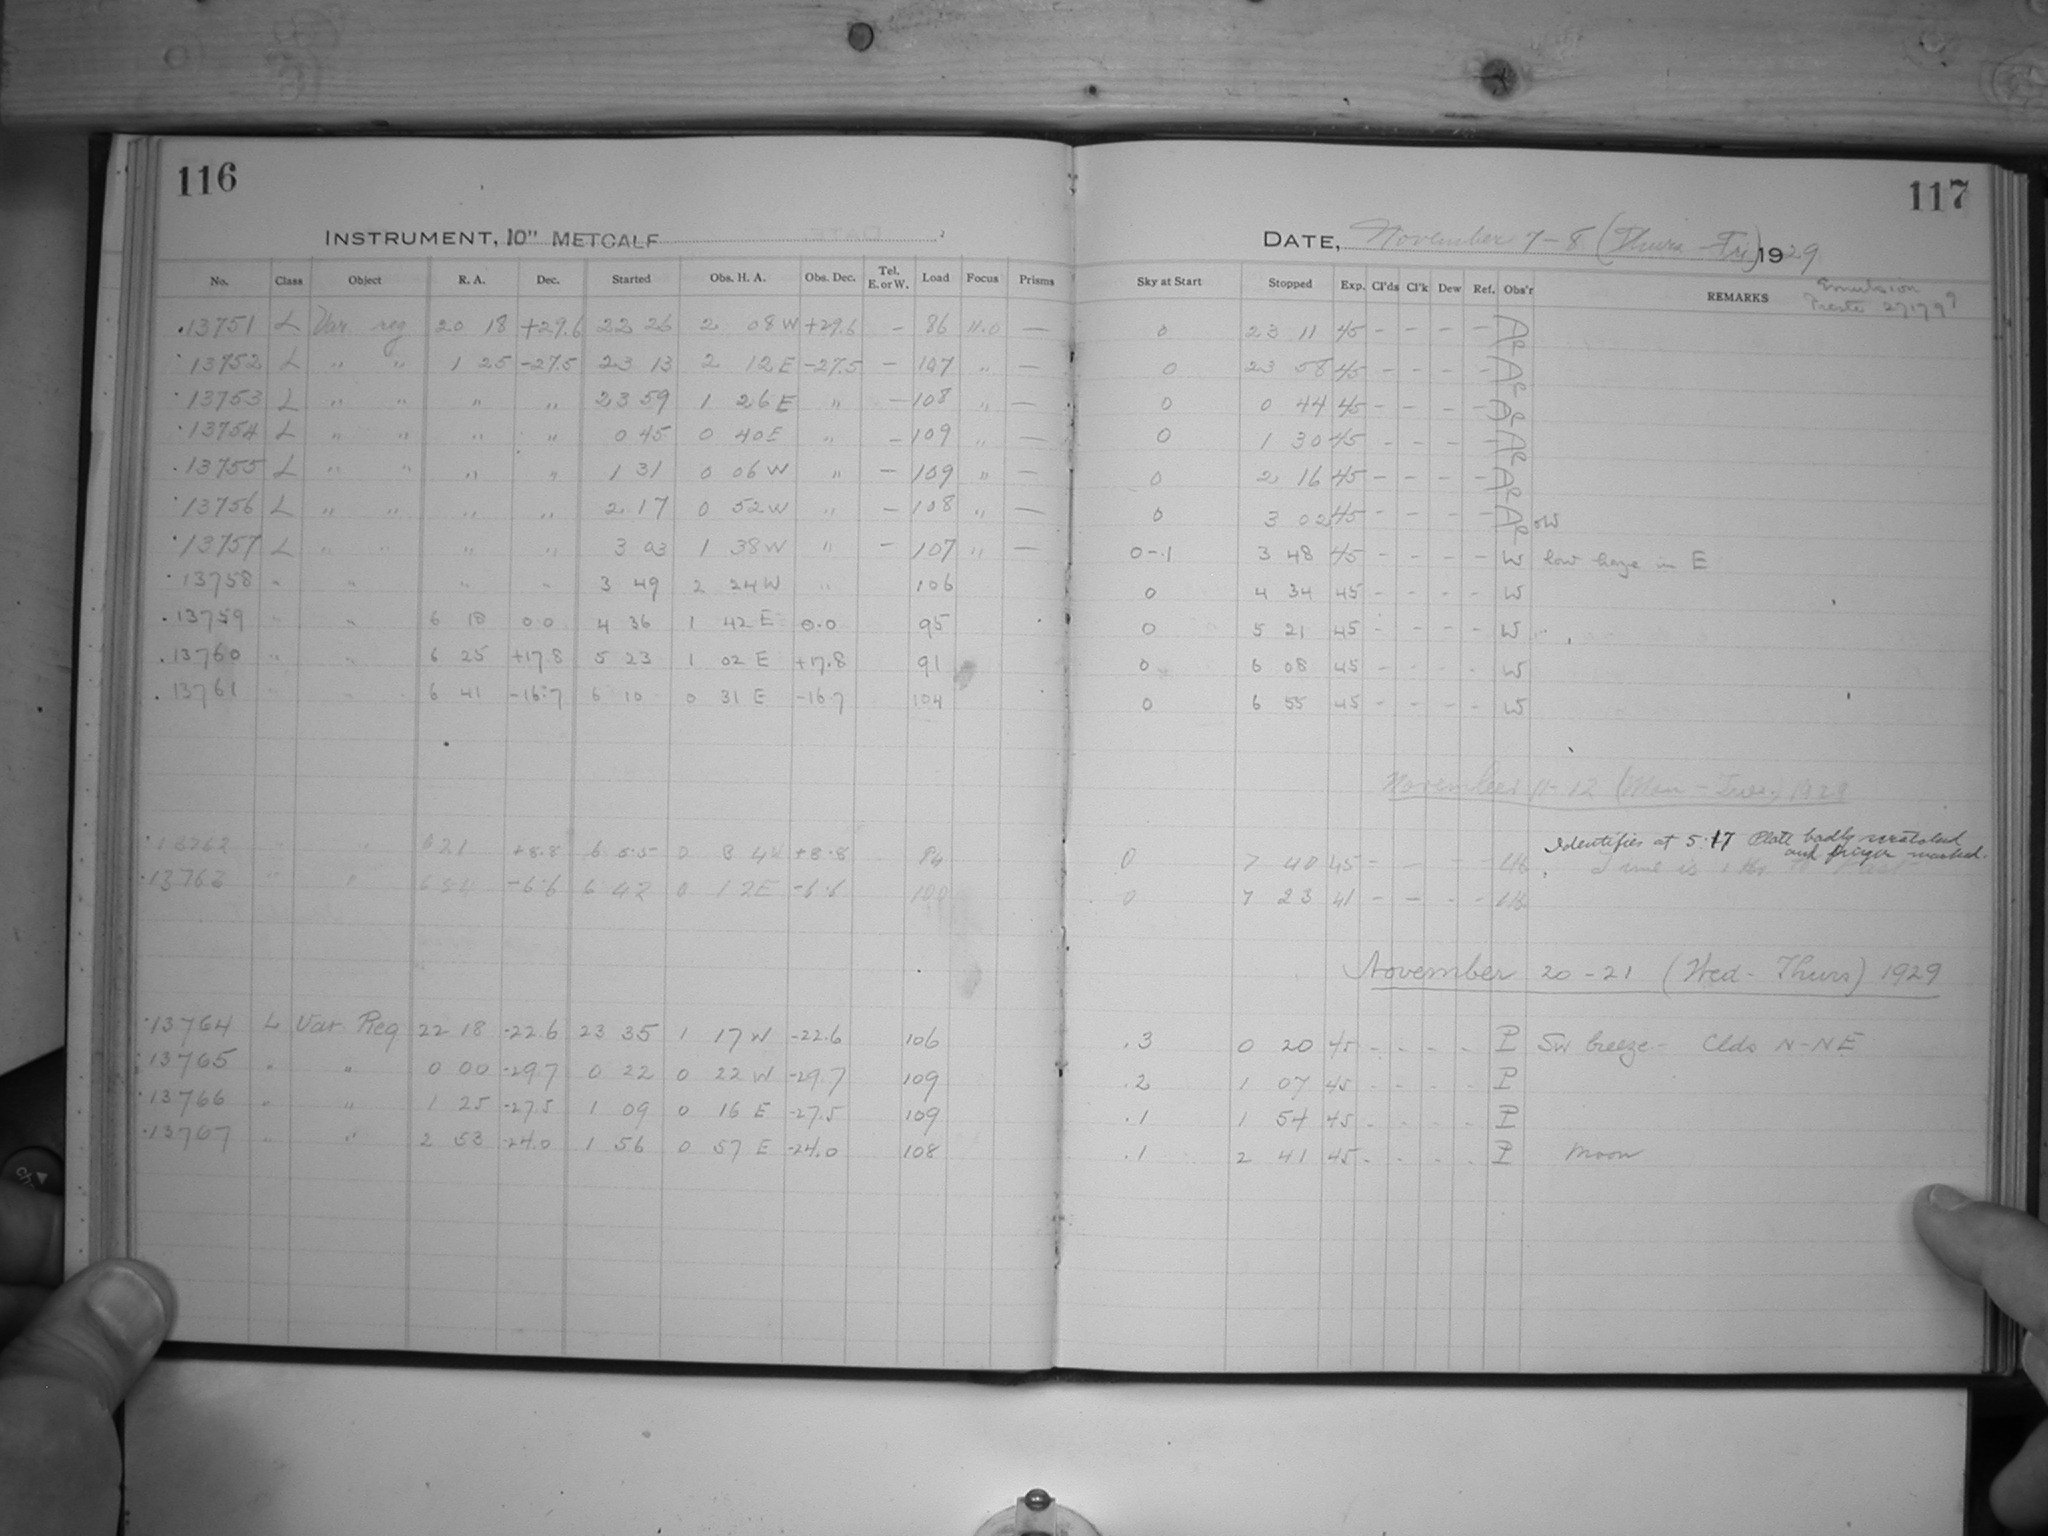 116
INSTRUMENT, 10" METCALF
No. Class Object R. A. Dec. Started Obs. H. A. Obs. Dec. Tel. E. or W. Load Focus Prisms
13751 L Var reg 20 18 +29.6 22 26 2 08 W +29.6 – 86 11.0 —
13752 L " " 1 25 -27.5 23 13 2 12 E -27.5 – 107 " —
13753 L " " " " 23 59 1 26 E " – 108 " —
13754 L " " " " 0 45 0 40 E " – 109 " —
13755 L " " " " 1 31 0 06 W " – 109 " —
13756 L " " " " 2 17 0 52 W " – 108 " —
13757 L " " " " 3 03 1 38 W " – 107 " —
13758 " " " " 3 49 2 24 W " 106
13759 " " 6 18 0.0 4 36 1 42 E 0.0 95
13760 " " 6 25 +17.8 5 23 1 02 E +17.8 91
13761 " " 6 41 -16.7 6 10 0 31 E -16.7 104
13762 " " +8.8 +8.8
13763 " " -6.6 6 42 0 12 E -6.6
13764 L Var Reg 22 18 -22.6 23 35 1 17 W -22.6 106
13765 " " 0 00 -29.7 0 22 0 22 W -29.7 109
13766 " " 1 25 -27.5 1 09 0 16 E -27.5 109
13767 " " 2 53 -24.0 1 56 0 57 E -24.0 108
117
DATE, November 7-8 (Thurs-Fri) 1929
Sky at Start Stopped Exp. Cl'ds Cl'k Dew Ref. Obs'r REMARKS
Emulsion
0 23 11 45 – – – –
0 23 58 45 – – – –
0 0 44 45 – – – –
0 1 30 45 – – – –
0 2 16 45 – – – –
0 3 02 45 – – – –
0-.1 3 48 45 – – – – W low haze in E
0 4 34 45 – – – – W
0 5 21 45 – – – – W
0 6 08 45 – – – – W
0 6 55 45 – – – – W
November 11-12 (Mon-Tues) 1929
Identifies at 5:17 Plate badly scratched
and finger marked.
0 7 40 45 – – – –
0 7 23 41 – – – –
November 20-21 (Wed-Thurs) 1929
.3 0 20 45 – – – – P SW breeze - Clds N-NE
.2 1 07 45 – – – – P
.1 1 54 45 – – – – P
.1 2 41 45 – – – – P Moon